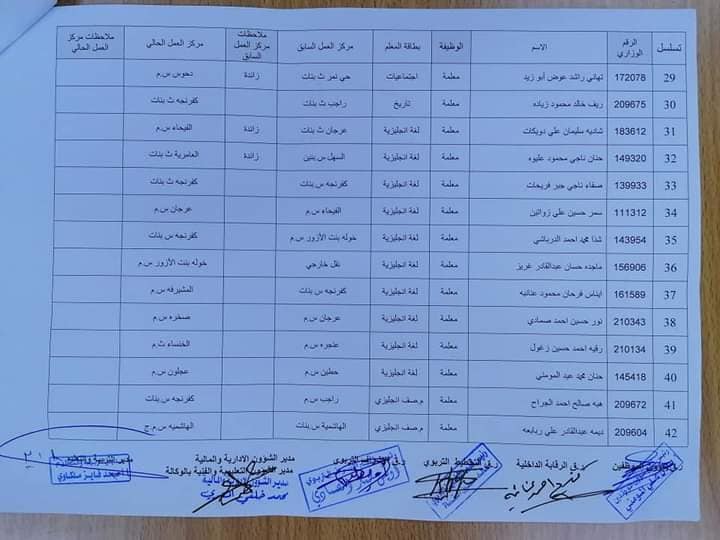 تسلسل الرقم الوزاري الاسم الوظيفة بطاقة المعلم مركز العمل السابق ملاحظات مركز العمل السابق مركز العمل الحالي ملاحظات مركز العمل الحالي
29 172078 تهاني راشد عوض أبو زيد معلمة اجتماعيات حي نمر ث بنات زائدة دحوس س.م
30 209675 ريف خالد محمود زياده معلمة تاريخ راجب ث بنات كفرنجه ث بنات
31 183612 شاديه سليمان علي دويكات معلمة لغة انجليزية عرجان ث بنات زائدة الفيحاء س.م
32 149320 حنان ناجي محمود عليوه معلمة لغة انجليزية السهل س.بنين زائدة العامرية ث بنات
33 139933 صفاء ناجي جبر فريحات معلمة لغة انجليزية كفرنجه س.بنات كفرنجه ث بنات
34 111312 سمر حسين علي زواتين معلمة لغة انجليزية الفيحاء س.م عرجان س.م
35 143954 شذا محمد احمد الدرباشي معلمة لغة انجليزية خوله بنت الأزور س.م كفرنجه س.بنات
36 156906 ماجده حسان عبدالقادر غريز معلمة لغة انجليزية نقل خارجي خوله بنت الأزور س.م
37 161589 ايناس فرحان محمود عنانبه معلمة لغة انجليزية كفرنجه س.بنات المشيرفه س.م
38 210343 نور حسين احمد صمادي معلمة لغة انجليزية عرجان س.م صخره س.م
39 210134 رقيه احمد حسين زغول معلمة لغة انجليزية عنجره س.م الخنساء ث.م
40 145418 حنان محمد عبد المومني معلمة لغة انجليزية حطين س.م عجلون س.م
41 209672 هبه صالح احمد الجراح معلمة م.صف انجليزي راجب س.م كفرنجه س.بنات
42 209604 ديمه عبدالقادر علي ربابعه معلمة م.صف انجليزي الهاشمية س.بنات الهاشميه س.م.ج
ر.ق الرقابة الداخلية ر.ق التخطيط التربوي مدير الشؤون الادارية والمالية
مدير الشؤون التعليمية والفنية بالوكالة